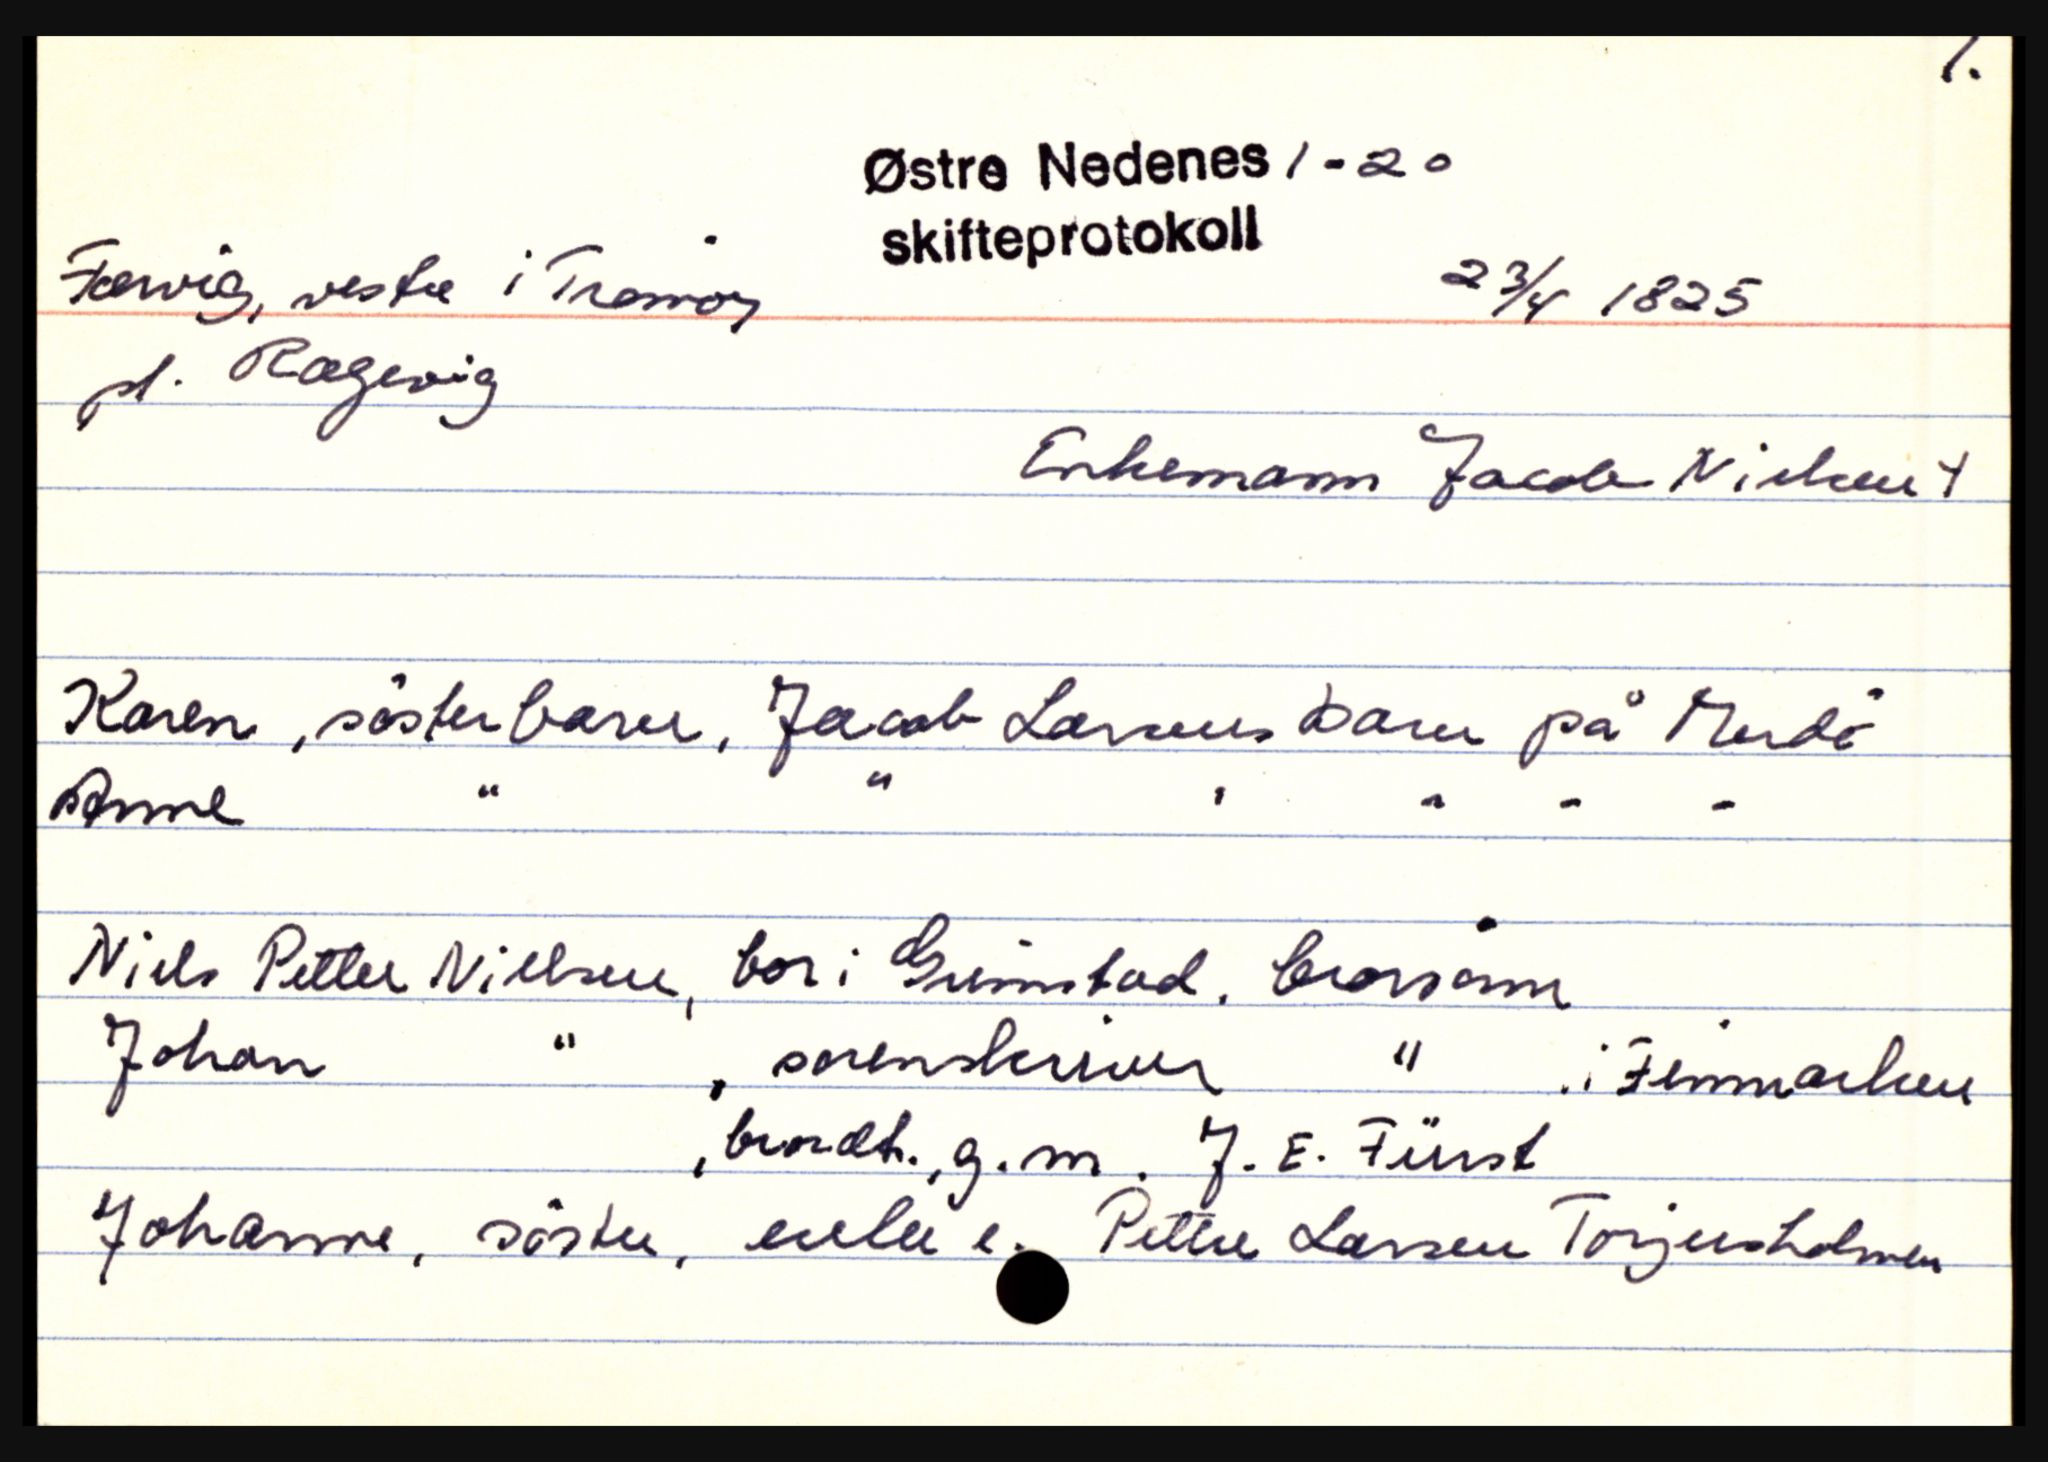 1.
Østre Nedenes 1-20
skifteprotokoll
Færvig, vestre i Tromöy 23/4 1825
pl. Rægevig
Enkemann Jacob Nielsen †
Karen, sösterbarn, Jacob Larsens barn på Merdö
Anne " " ' " - -
Niels Petter Nielsen, bor i Grimstad. brorsönn
Johan " , sorenskriver " i Finmarken
, brordt., g.m. J. E. Fürst
Johanne, söster, enke e. Petter Larsen Torjusholmen